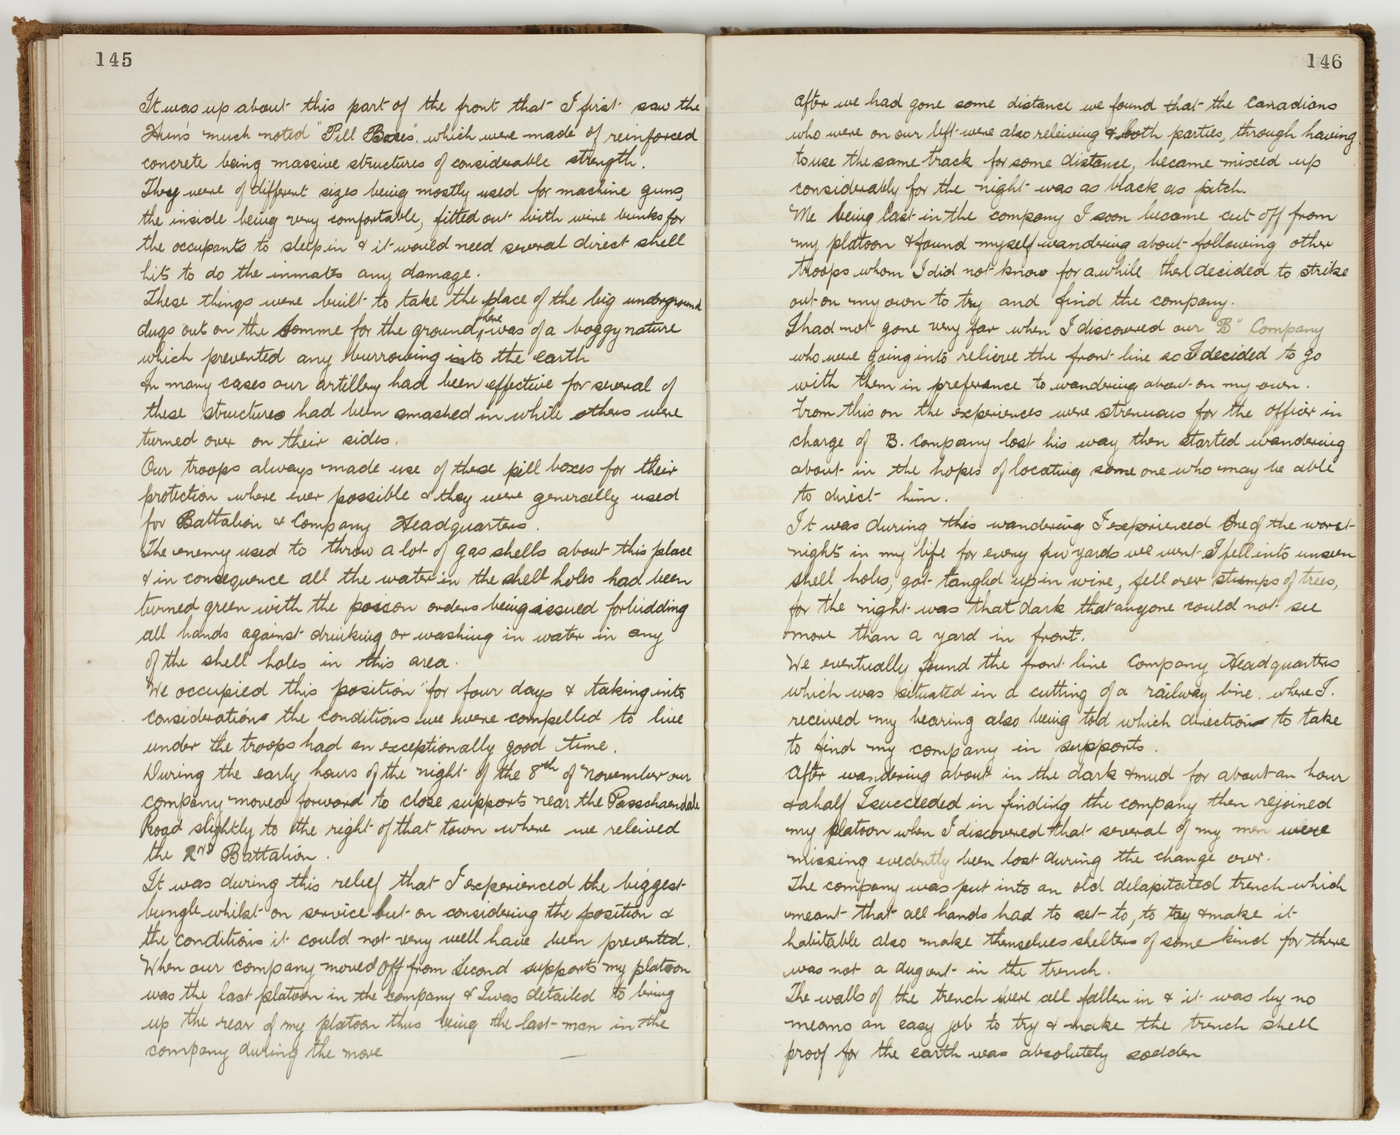 145
It was up about this part of the front that I first saw the
Hun's much noted "Pill Boxes", which were made of reinforced
concrete being massive structures of considerable strength.
They were of different sizes being mostly used for machine guns,
the inside being very comfortable, fitted out with wire bunks for
the occupants to sleep in & it would need several direct shell
hits to do the inmates any damage.
These things were built to take the place of the big underground
dugs outs on the Somme for the ground, here was of a boggy nature
which prevented any burrowing into the earth
In many cases our artillery had been effective for several of
these structures had been smashed in while others were
turned over on their sides.
Our troops always made use of these pill boxes for their
protection where ever possible & they were generally used
for Battalion & Company Headquarters.
The enemy used to throw a lot of gas shells about this place
& in consequence all the water in the shell holes had been
turned green with the poison orders being issued forbidding
all hands against drinking or washing in water in any
of the shell holes in this area.
We occupied this position for four days & taking into
considerations the conditions we were compelled to live
under the troops had an exceptionally good time.
During the early hours of the night of the 8th of November our
company moved forward to close supports near the Passchaendale
Road slightly to the right of that town where we releived
the 2nd Battalion.
It was during this relief that I experienced the biggest
bungle whilst on service but on considering the position &
the conditions it could not very well have been prevented.
When our company moved off from second supports my platoon
was the last platoon in the company & I was detailed to bring
up the rear of my platoon thus being the last man in the
company during the move
146
After we had gone some distance we found that the Canadians
who were on our left were also releiving & both parties, through having
to use the same track for some distance, became mixed up
considerably for the night was as black as pitch.
Me being last in the company I soon became cut off from
my platoon & found myself wandering about following other
troops whom I did not know for a while then decided to strike
out on my own to try and find the company.
I had not gone very far when I discovered our "B" Company
who were going into relieve the front line so I decided to go
with them in preference to wandering about on my own.
From this on the experiences were strenuous for the officer in
charge of B. Company lost his way then started wandering
about in the hopes of locating some one who may be able
to direct him.
It was during this wandering I experienced One of the worst
nights in my life for every few yards we went I fell into unseen
shell holes, got tangled up in wire, fell over stumps of trees,
for the night was that dark that anyone could not see
more than a yard in front.
We eventually found the front line Company Headquarters
which was situated in a cutting of a railway line, where I.
received my bearing also being told which direction to take
to find my company in supports.
After wandering about in the dark & mud for about an hour
& a half I succeeded in finding the company then rejoined
my platoon when I discovered that several of my men were
missing evedently been lost during the change over.
The company was put into an old delapitated trench which
meant that all hands had to set to, to try & make it
habitable also make themselves shelters of some kind for there
was not a dugout in the trench.
The walls of the trench were all fallen in & it was by no
means an easy job to try & make the trench shell
proof for the earth was absolutely sodden